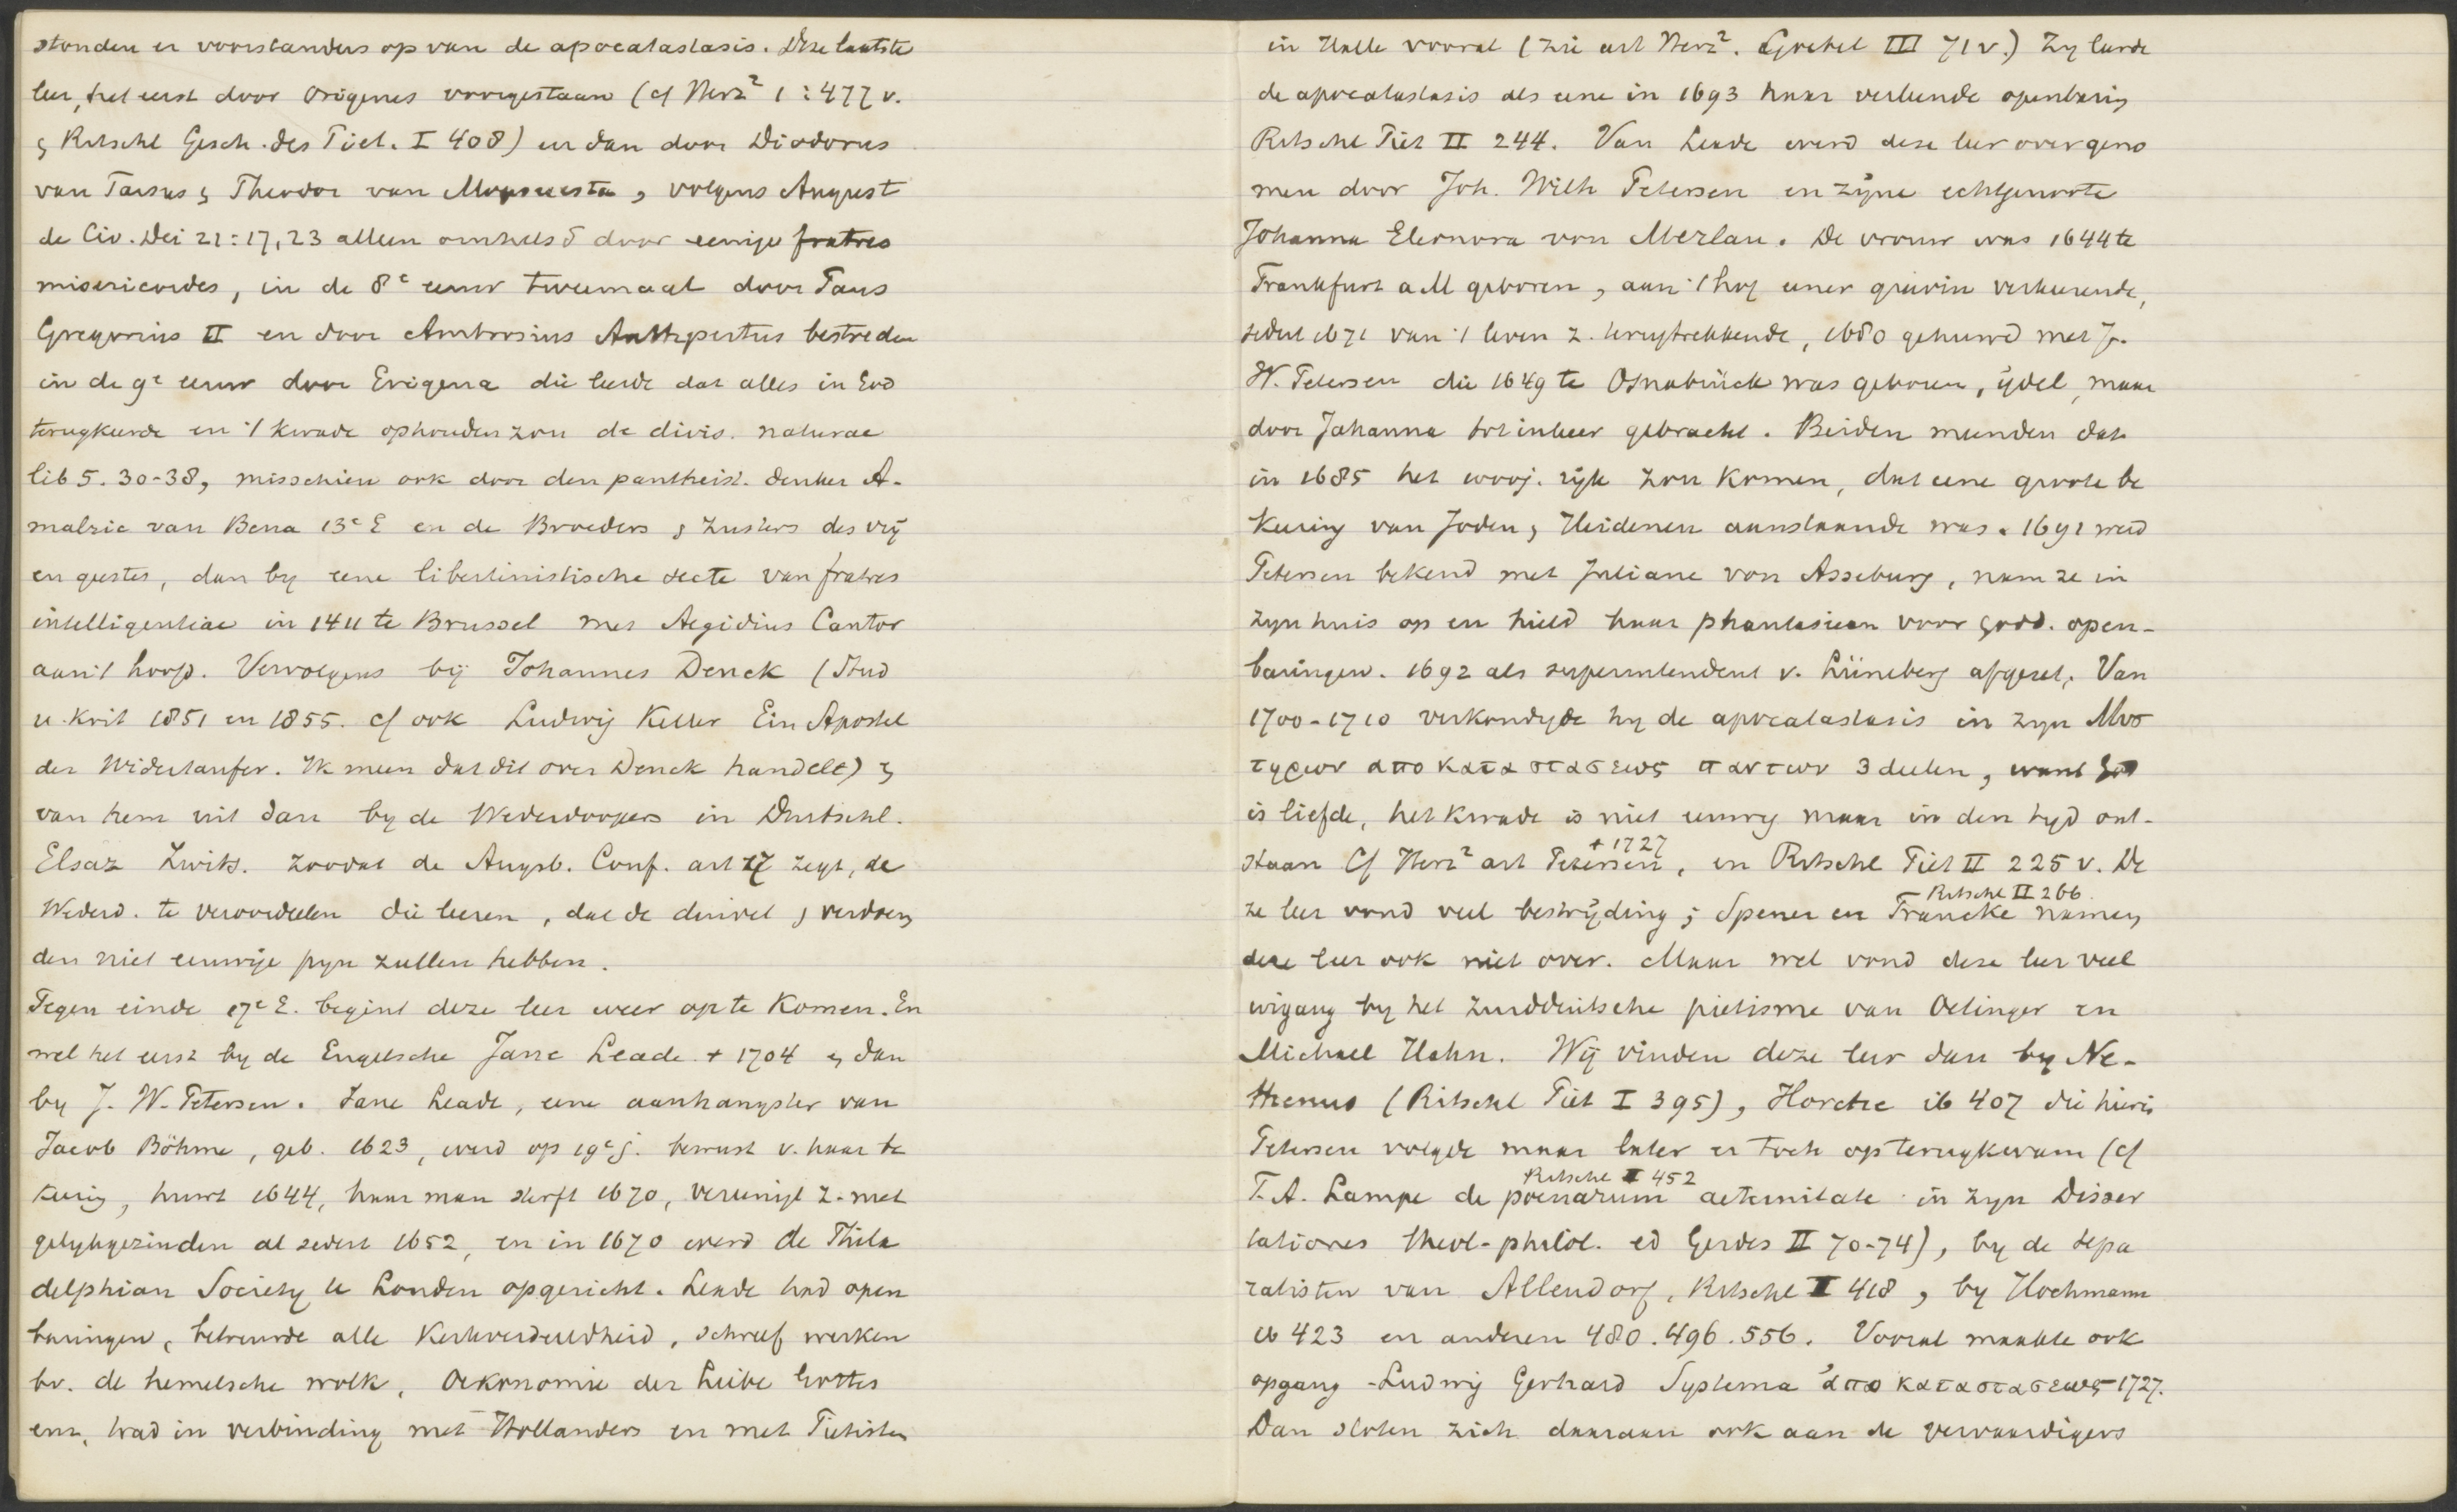 stonden er voorstanders op van de apocatastasis. Deze laatste
leer, het eerst door Origenes voorgestaan (cf Herz² 1:477 v.
& Ritschl Gesch. des Piet. I 408) en dan door Diodorus
van Tarsus & Theodor van Mopsuesta, volgens August
de Civ. Dei 21:17,23 alleen omhelsd door eenige fratres
misericordes, in de 8e eeuw tweemaal door Paus
Gregorius II en door Ambrosius Authpertus bestreden
in de 9e eeuw door Erigena die leerde dat alles in God
terugkeerde en 't kwade ophouden zou de divis. naturae
lib 5. 30-38, misschien ook door den pantheist. denker A-
malric van Bena 13e E en de Broeders & Zusters des vrij
en geestes, dan by eene libertinistische secte van fratres
intelligentiae in 1411 te Brussel met Aegidius Cantor
aan 't hoofd. Vervolgens bij Johannes Denck (Stud
u. Krit 1851 en 1855. cf ook Ludwig Keller Ein Apostel
der Widertaufer. Ik meen dat dit over Denck handelt) &
van hem uit dan by de Wederdoopers in Duitschl.
Elsaz Zwits. zoodat de Augsb. Conf. art 17 zegt, de
Wederd. te veroordeelen die leeren, dat de duivel & verdoem
den niet eeuwige pyn zullen hebben.
Tegen einde 17e E. begint deze leer weer op te komen. En
wel het eerst by de Engelsche Jane Leade † 1704 & dan
by J. W. Petersen. Jane Leade, eene aanhangster van
Jacob Böhme, geb. 1623, werd op 19e j. bewust v. haar be
keering, huwt 1644, haar man sterft 1670, vereenigt z. met
gelykgezinden al sedert 1652, en in 1670 werd de Phila
delphian Society te Londen opgericht. Leade had open
baringen, betreurde alle Kerkverdeeldheid, schreef werken
bv. de hemelsche wolk, Oekonomie der Leibe Gottes
enz, trad in verbinding met Hollanders en met Pietisten
in Halle vooral (zie art Herz². Goebel III 71 v.) Zy leerde
de apocatastasis als eene in 1693 haar verleende openbaring
Ritschl Piet II 244. Van Leade werd deze leer overgeno
men door Joh. Wilh Petersen en zijne echtgenoote
Johanna Eleonora von Merlau. De vrouw was 1644 te
Frankfurt a M geboren, aan 't hof eener gravin verkeerende,
sedert 1671 van 't leven z. terugtrekkende, 1680 gehuwd met J.
W. Petersen die 1649 te Osnabrück was geboren, ijdel, maar
door Johanna tot inkeer gebracht. Beiden meenden dat
in 1685 het 1000j. rijk zou komen, dat eene groote be
keering van Joden & Heidenen aanstaande was. 1691 werd
Petersen bekend met Juliane von Asseburg, nam ze in
zyn huis op en hield haar phantasieen voor godd. open-
baringen. 1692 als superintendent v. Lüneberg afgezet. Van
1700-1710 verkondigde hy de apocatastasis in zyn Μυσ
τηριον αποκαταστασεως παντων 3 deelen, want God
is liefde, het kwade is niet eeuwig maar in den tyd ont-
staan Cf Herz² art Petersen † 1727, en Ritschl Piet II 225 v. De
ze leer vond veel bestrijding; Spener en Francke Ritschl II 266. namen
deze leer ook niet over. Maar wel vond deze leer veel
ingang by het zuidduitsche pietisme van Oetinger en
Michael Hahn. Wij vinden deze leer dan by Ne-
thenus (Ritschl Piet I 395), Horche ib 407 die hierin
Petersen volgde maar later er toch op terugkwam (cf
F. A. Lampe de poenarum Ritschl I 452 aeternitate in zyn Disser
tationes theol-philol. ed Gerdes II 70-74), by de sepa
ratisten van Allendorf, Ritschl I 418, by Hochmann
ib 423 en anderen 480. 496. 556. Vooral maakte ook
opgang Ludwig Gerhard Systema ἀποκαταστασεως 1727.
Dan sloten zich daaraan ook aan de vervaardigers